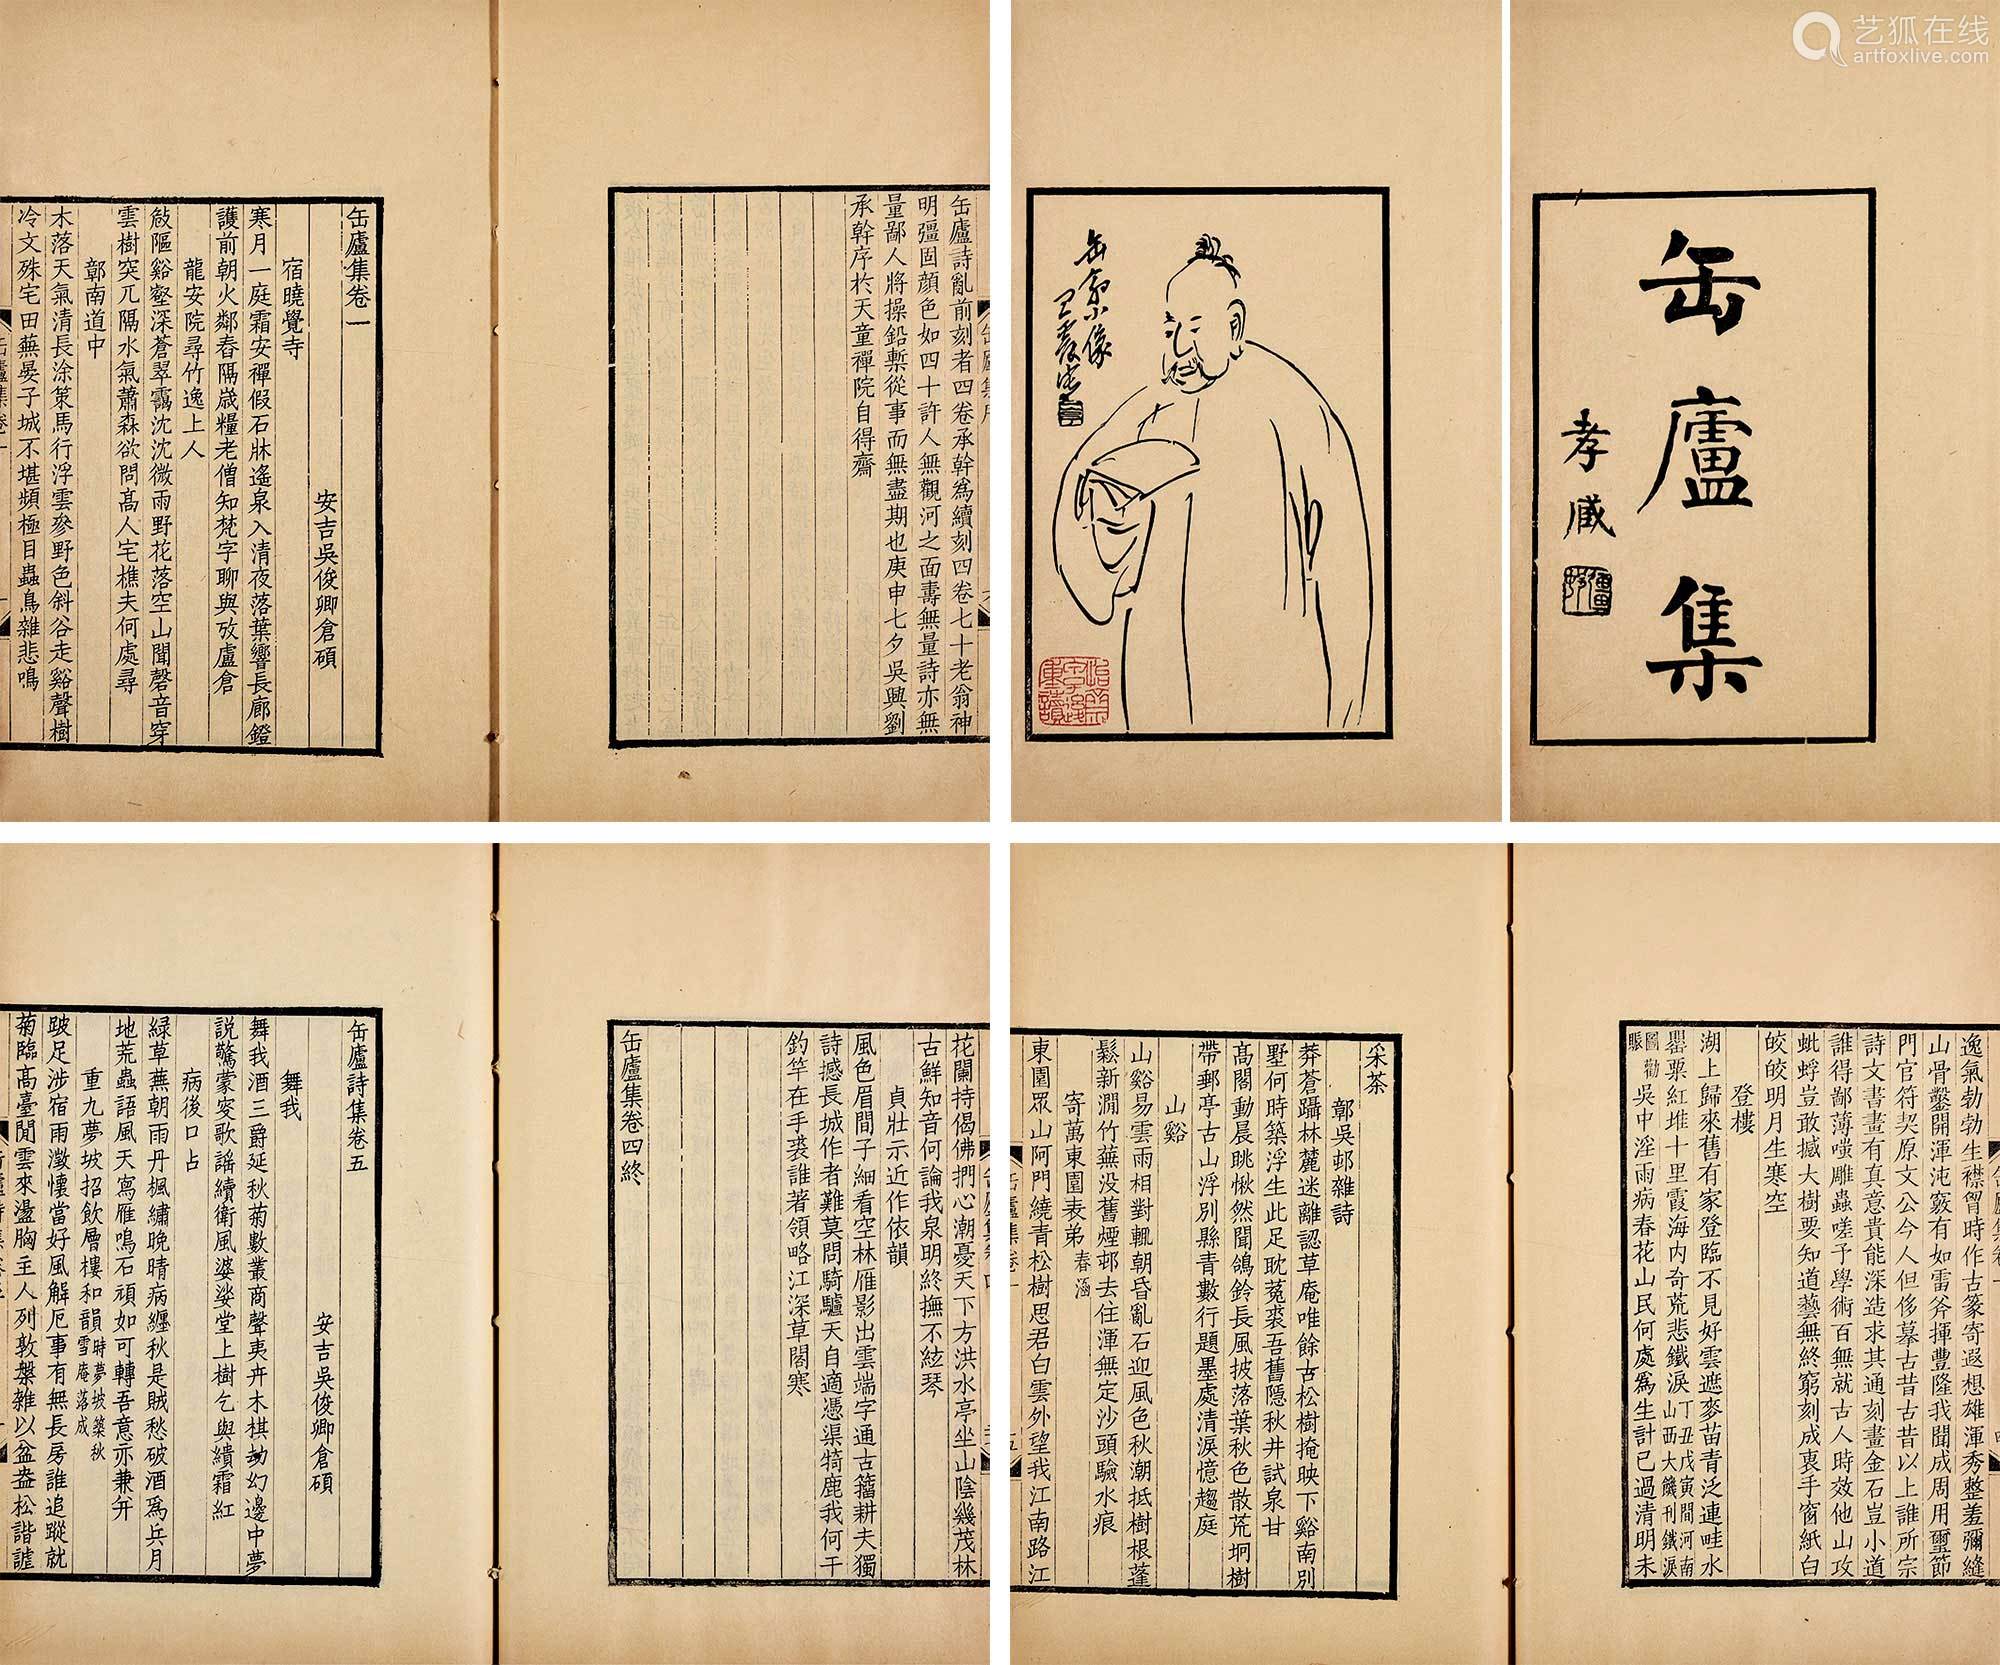 艺狐在线
artfoxlive.com
缶廬集
孝臧
缶翁小像
缶廬詩亂前刻者四卷承幹爲續刻四卷七十老翁神
明彊固顏色如四十許人無觀河之面壽無量詩亦無
量鄙人將操鉛槧從事而無盡期也庚申七夕吳興劉
承幹序於天童禪院自得齋
缶廬集卷一
安吉吳俊卿倉碩
宿曉覺寺
寒月一庭霜安禪假石牀遙泉入清夜落葉響長廊鐙
護前朝火鄰舂隔歲糧老僧知梵字聊與攷盧倉
龍安院尋竹逸上人
敧隔谿壑深蒼翠靄沈沈微雨野花落空山聞磬音穿
雲樹突兀隔水氣蕭森欲問高人宅樵夫何處尋
鄣南道中
木落天氣清長涂策馬行浮雲參野色斜谷走谿聲樹
冷文殊宅田蕪晏子城不堪頻極目蟲鳥雜悲鳴
逸氣勃勃生襟曾時作古篆寄遐想雄渾秀整羞彌縫
山骨鑿開渾沌竅有如雷斧揮豐隆我聞成周用璽節
門官符契原文公今人但侈摹古昔古昔以上誰所宗
詩文書畫有真意貴能深造求其通刻畫金石豈小道
誰得鄙薄嗤雕蟲嗟予學術百無就古人時效他山攻
蚍蜉豈敢撼大樹要知道藝無終窮刻成裹手窗紙白
皎皎明月生寒空
登樓
湖上歸來舊有家登臨不見好雲遮麥苗青泛連畦水
罌粟紅堆十里霞海内奇荒悲鐵淚丁丑戊寅間河南山西大饑刊鐵淚
圖勸賑吳中淫雨病春花山民何處爲生計已過清明未
采茶
鄣吳邨雜詩
莽蒼躡林麓迷離認草庵唯餘古松樹掩映下谿南別
墅何時築浮生此足耽菟裘吾舊隱秋井試泉甘
高閣動晨眺愀然聞鴿鈴長風披落葉秋色散荒坰樹
帶郵亭古山浮別縣青數行題墨處清淚憶趨庭
山谿
山谿易雲雨相對輒朝昏亂石迎風色秋潮抵樹根蓬
鬆新澗竹蕪没舊煙邨去住渾無定沙頭驗水痕
寄萬東園表弟春涵
東園眾山阿門繞青松樹思君白雲外望我江南路江
花闌持偈佛捫心潮憂天下方洪水亭坐山陰幾茂林
古鮮知音何論我泉明終撫不絃琴
貞壯示近作依韻
風色眉間子細看空林雁影出雲端字通古籀耕夫獨
詩撼長城作者難莫問騎驢天自適憑渠犄鹿我何干
釣竿在手裘誰著領略江深草閣寒
缶廬集卷四終
缶廬詩集卷五
安吉吳俊卿倉碩
舞我
舞我酒三爵延秋菊數叢商聲夷卉木棋劫幻邊中夢
説驚蒙叜歌謡續衛風婆娑堂上樹乞與纈霜紅
病後口占
緑草蕪朝雨丹楓繡晚晴病纏秋是賊愁破酒爲兵月
地荒蟲語風天寫雁鳴石頑如可轉吾意亦兼并
重九夢坡招飲層樓和韻時夢坡築秋雪庵落成
跛足涉宿雨澂懷當好風解厄事有無長房誰追蹤就
菊臨高臺閒雲來盪胸主人列敦槃雜以盆盎松諧謔